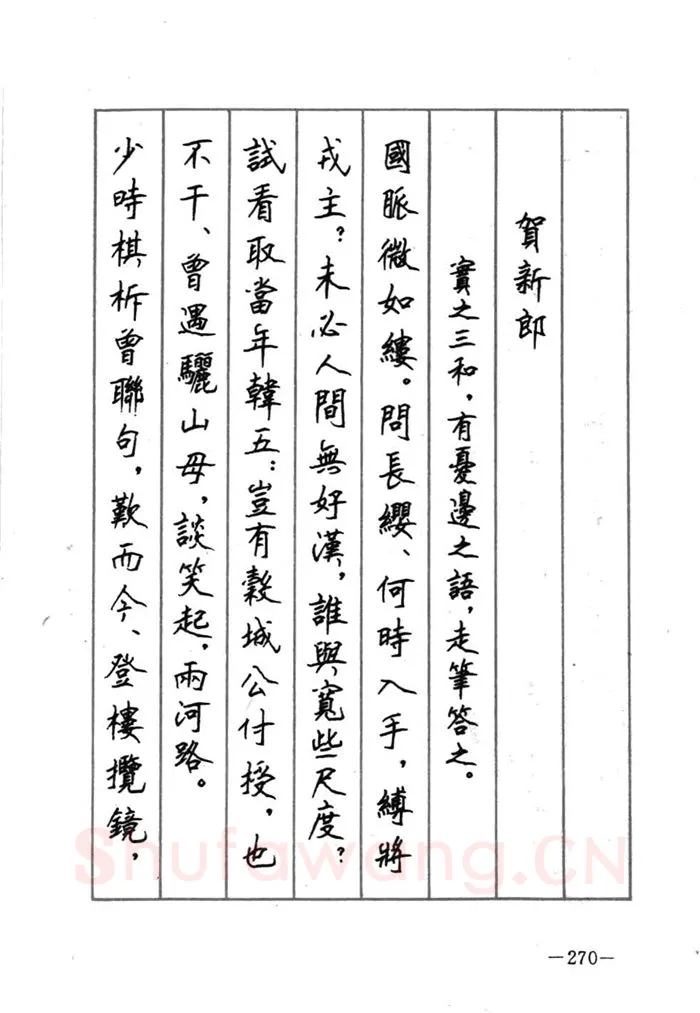 賀新郎
實之三和，有憂邊之語，走筆答之。
國脈微如縷。問長纓、何時入手，縛將
戎主？未必人間無好漢，誰與寬些尺度？
試看取當年韓五：豈有穀城公付授，也
不干、曾遇驪山母，談笑起，兩河路。
少時棋柝曾聯句，歎而今、登樓攬鏡，
Shufawang.CN
—270—